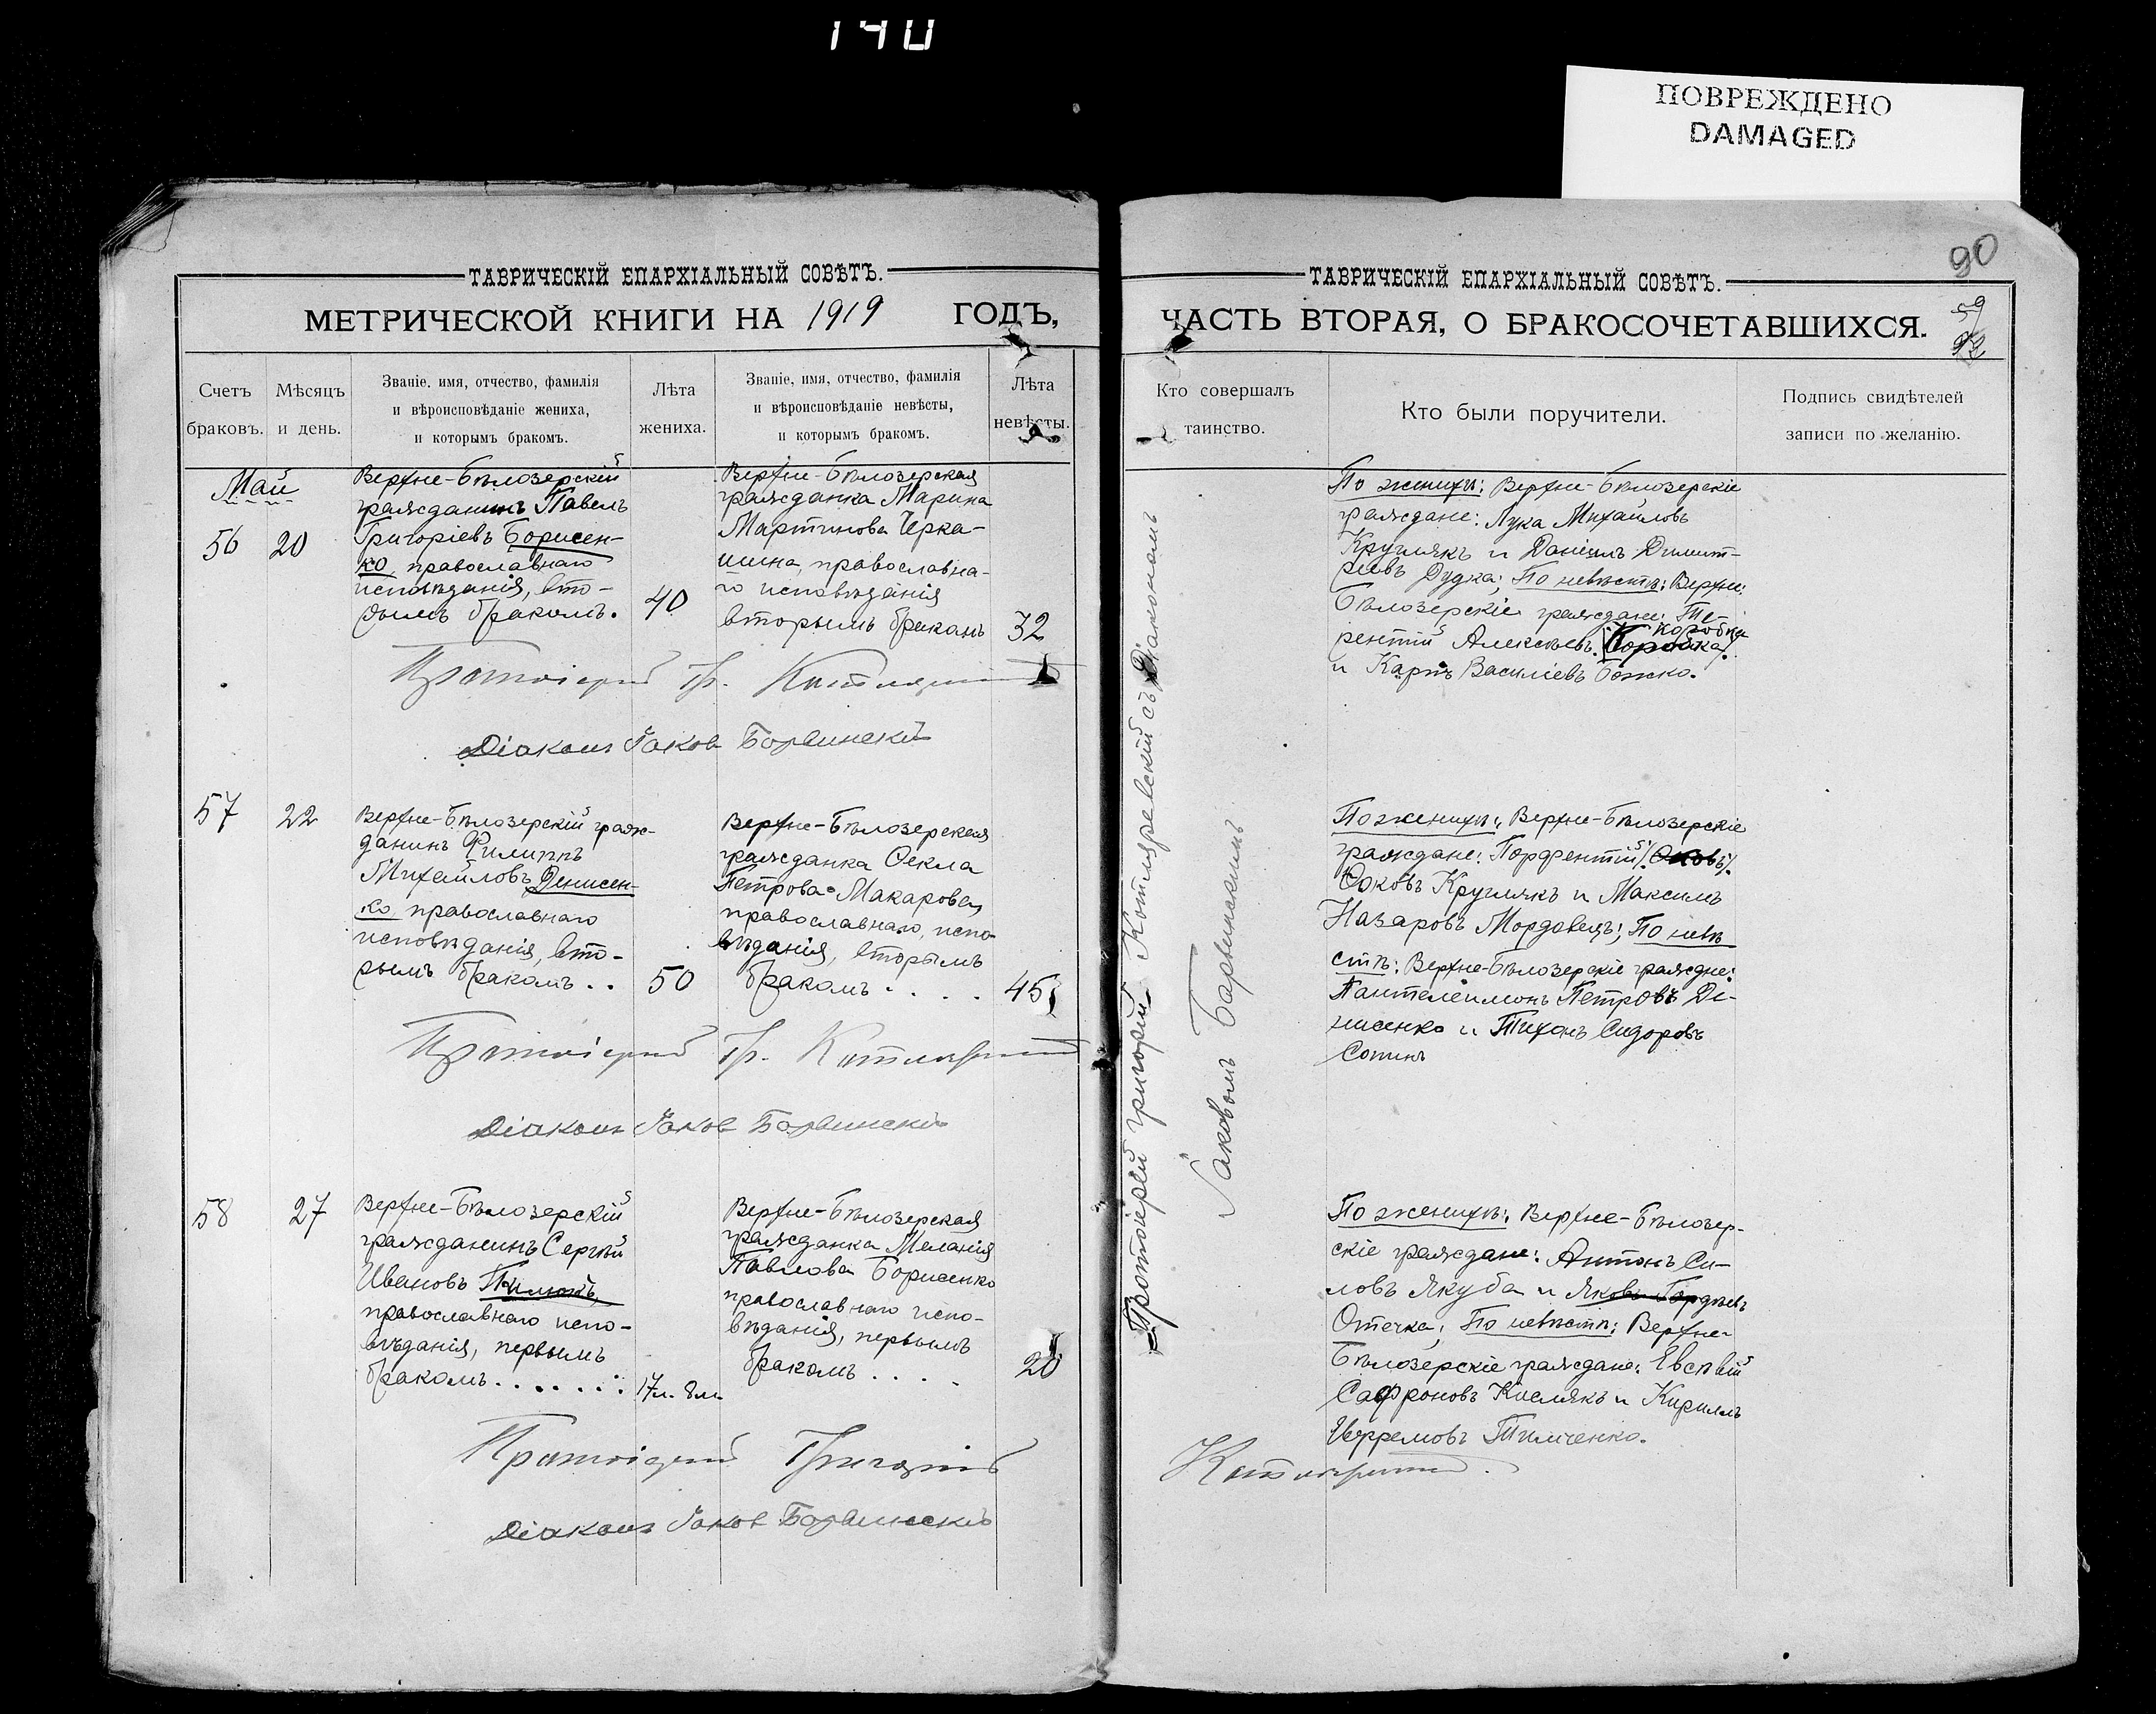 140
ПОВРЕЖДЕНО
DAMAGED
90
ТАВРИЧЕСКІЙ ЕПАРХІАЛЬНЫЙ СОВѢТЪ.
МЕТРИЧЕСКОЙ КНИГИ НА 1919 ГОДЪ,
Счетъ браковъ.
Мѣсяцъ и день.
Званіе, имя, отчество, фамилія
и вѣроисповѣданіе жениха,
и которымъ бракомъ.
Лѣта жениха.
Званіе, имя, отчество, фамилія
и вѣроисповѣданіе невѣсты,
и которымъ бракомъ.
Лѣта невѣсты.
Май
56 20
Верхне-Бѣлозерскій
гражданинъ Павелъ
Григоріевъ Борисен-
ко, православнаго
исповѣданія, вто-
рымъ бракомъ.
40
Верхне-Бѣлозерская
гражданка Марина
Мартинова Черка-
шина, православна-
го исповѣданія
вторымъ бракомъ
32
Протоіерей Гр. Котляревскій
Діаконъ Іаковъ Барвинскій
57 22
Верхне-Бѣлозерскій граж-
данинъ Филиппъ
Михайловъ Денисен-
ко православнаго
исповѣданія, вто-
рымъ бракомъ . .
50
Верхне-Бѣлозерская
гражданка Ѳекла
Петрова Макарова,
православнаго, испо-
вѣданія, вторымъ
бракомъ . . . .
45
Протоіерей Гр. Котляревскій
Діаконъ Іаковъ Барвинскій
58 27
Верхне-Бѣлозерскій
гражданинъ Сергѣй
Ивановъ
православнаго испо-
вѣданія, первымъ
бракомъ . . . . . . .
17 л. 8 м.
Верхне-Бѣлозерская
гражданка Меланія
Павлова Борисенко
православнаго испо-
вѣданія, первымъ
бракомъ . . . .
20
Протоіерей Григорій
Діаконъ Іаковъ Барвинскій
ТАВРИЧЕСКІЙ ЕПАРХІАЛЬНЫЙ СОВѢТЪ.
ЧАСТЬ ВТОРАЯ, О БРАКОСОЧЕТАВШИХСЯ.
59
Кто совершалъ
таинство.
Кто были поручители.
Подпись свидѣтелей
записи по желанію.
Протоіерей Григорій Котляревскій съ Діакономъ
Іаковомъ Барвинскимъ
По женихѣ: Верхне-Бѣлозерскіе
граждане: Лука Михайловъ
Круглякъ и Даніилъ Димит-
ріевъ Дудка; По невѣстѣ: Верхне-
Бѣлозерскіе граждане: Те-
Коробка
рентій Алексѣевъ
и Карпъ Василіевъ Божко.
По женихѣ: Верхне-Бѣлозерскіе
граждане: Порфентій
Ѳоковъ Круглякъ и Максимъ
Назаровъ Мордовецъ; По невѣ
стѣ: Верхне-Бѣлозерскіе гражднe:
Пантелеимонъ Петровъ Де-
нисенко и Тихонъ Сидоровъ
Сопинъ
По женихѣ: Верхне-Бѣлозер-
скіе граждане: Антонъ Си-
ловъ Якуба и Яковъ Гордѣевъ
Отечка; По невѣстѣ: Верхне-
Бѣлозерскіе граждане: Евсѣвій
Сафроновъ Кислякъ и Кириллъ
Иефремовъ Тимченко.
Котляревскій.